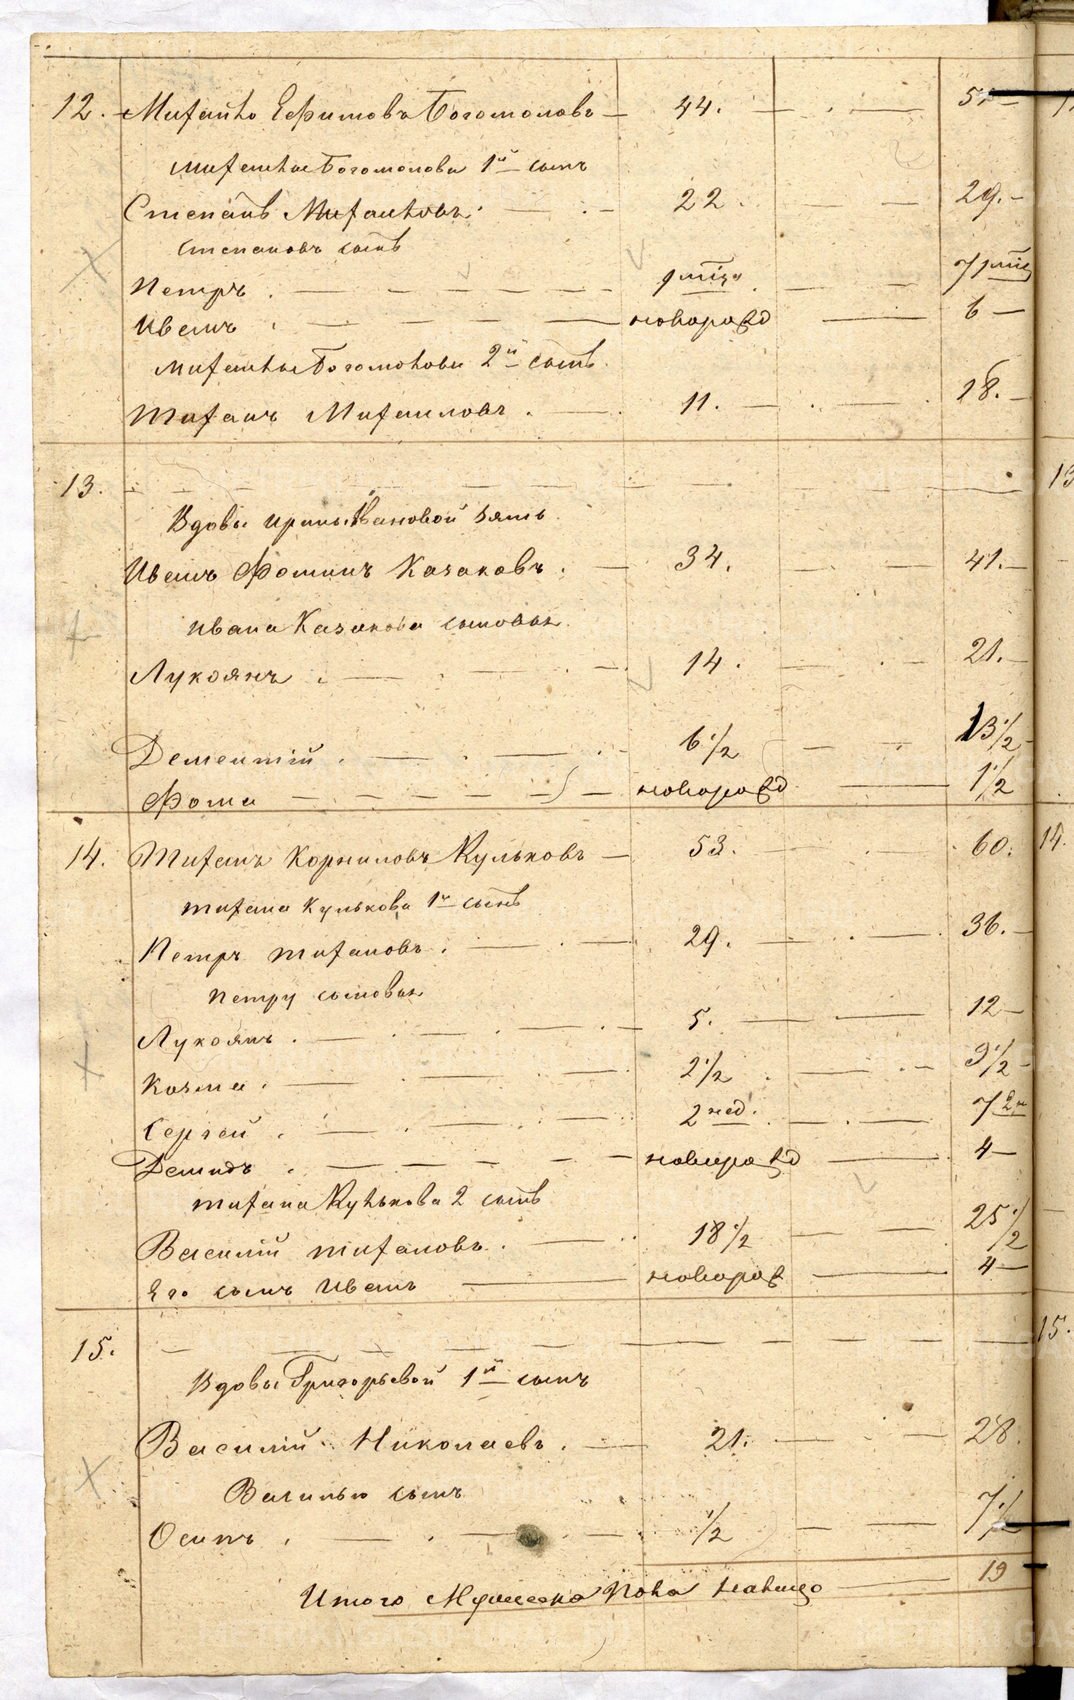 12. Михайло Ефимовъ Богомоловъ 44. 51
Михайлы Богомолова 1й сынъ
Степанъ Михайловъ. 22. 29.
Степановъ сынъ
Петръ. 7
Иванъ. новорожд 6
Михайлы Богомолова 2й сынъ.
Тиханъ Михаиловъ. 11. 18.
13. 13
Вдовы Ирины Ивановой зять
Иванъ Фоминъ Казаковъ. 34. 41.
Ивана Казакова сыновья
Лукоянъ. 14. 21.
Дементiй. 6 1/2 13 1/2
Фома новорожд 1 1/2
14. Тиханъ Корниловъ Кульковъ 53. 60. 14.
Тихана Кулькова 1й сынъ
Петръ Тихановъ. 29. 36.
Петру сыновья
Лукоянъ. 5. 12
Козма. 2 1/2 9 1/2
Сергей. 2 нед. 7 2 н
Демидъ. новорожд 4
Тихана Кулькова 2 сынъ
Василiй Тихановъ. 18 1/2 25 1/2
Его сынъ Иванъ новорож 4
15. 15.
Вдовы Григорьевой 1й сынъ
Василiй Николаевъ. 21. 28.
Василью сынъ
Осипъ. 1/2 7 1/2
Итого Мужеска Пола налицо 19